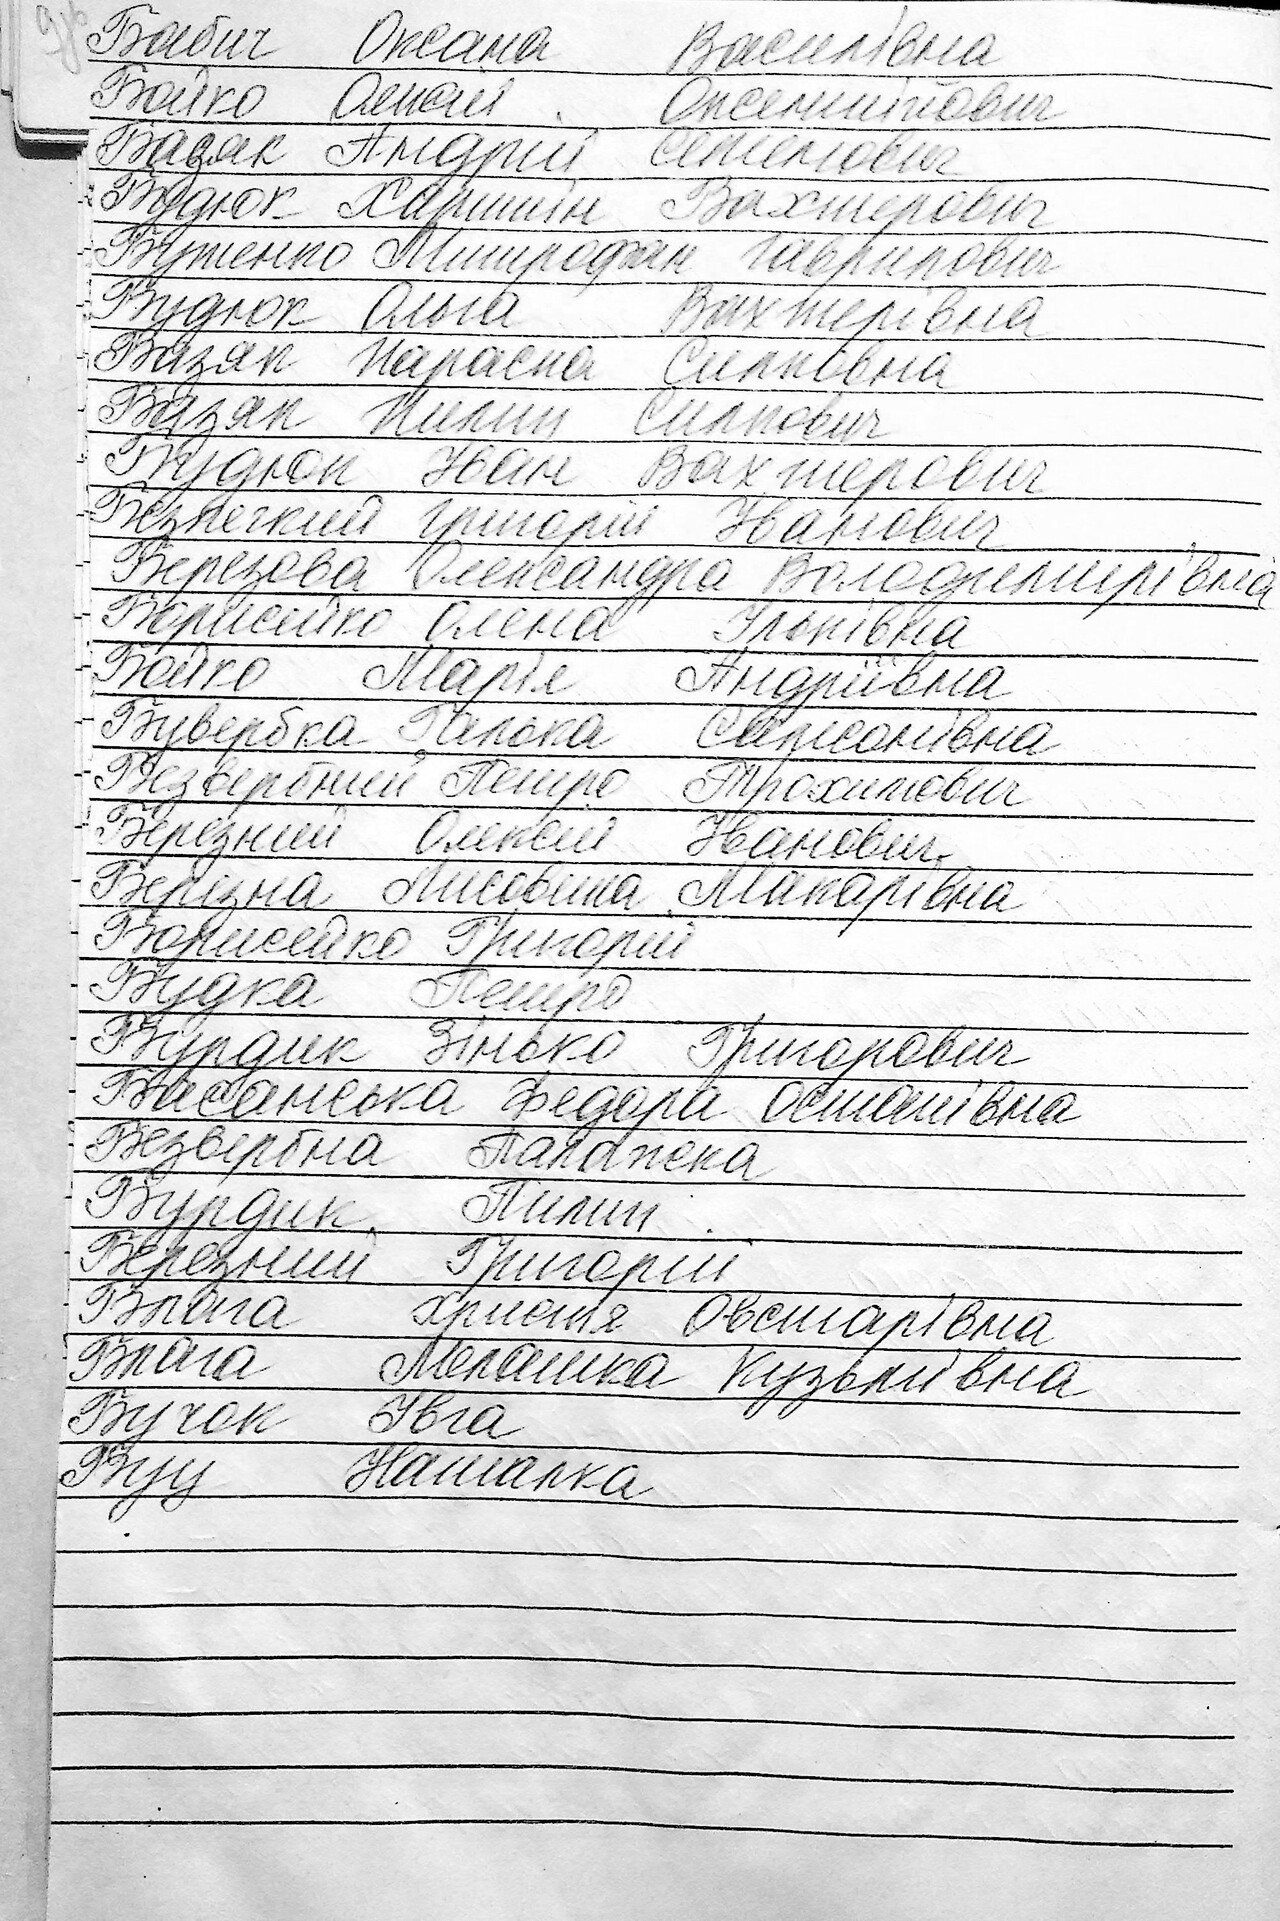 Бабич Оксана Василівна
Бойко Олексій Оксентійович
Базяк Андрій Семенович
Будюк Харитін Вахтерович
Бутенко Митрофан Гаврилович
Будюк Ольга Вахтерівна
Базяк Параска Силковна
Базяк Пилип Силкович
Будюк Іван Вахтерович
Безпечний Григорій Іванович
Березова Олександра Володимирівна
Борисейко Олена Ільківна
Бойко Марія Андріївна
Бувербка Галька Самсонівна
Безвербний Петро Трохимович
Березний Олексій Іванович
Березна Лисовета Макарівна
Борисейко Григорій
Будка Петро
Бурдик Зінько Григорович
Басанська Федора Остапівна
Безвербна Палажка
Бурдик Пилип
Березний Григорій
Влага Христя Овстарівна
Влага Мелашка Кузьмівна
Бучок Ївга
Буц Наталка